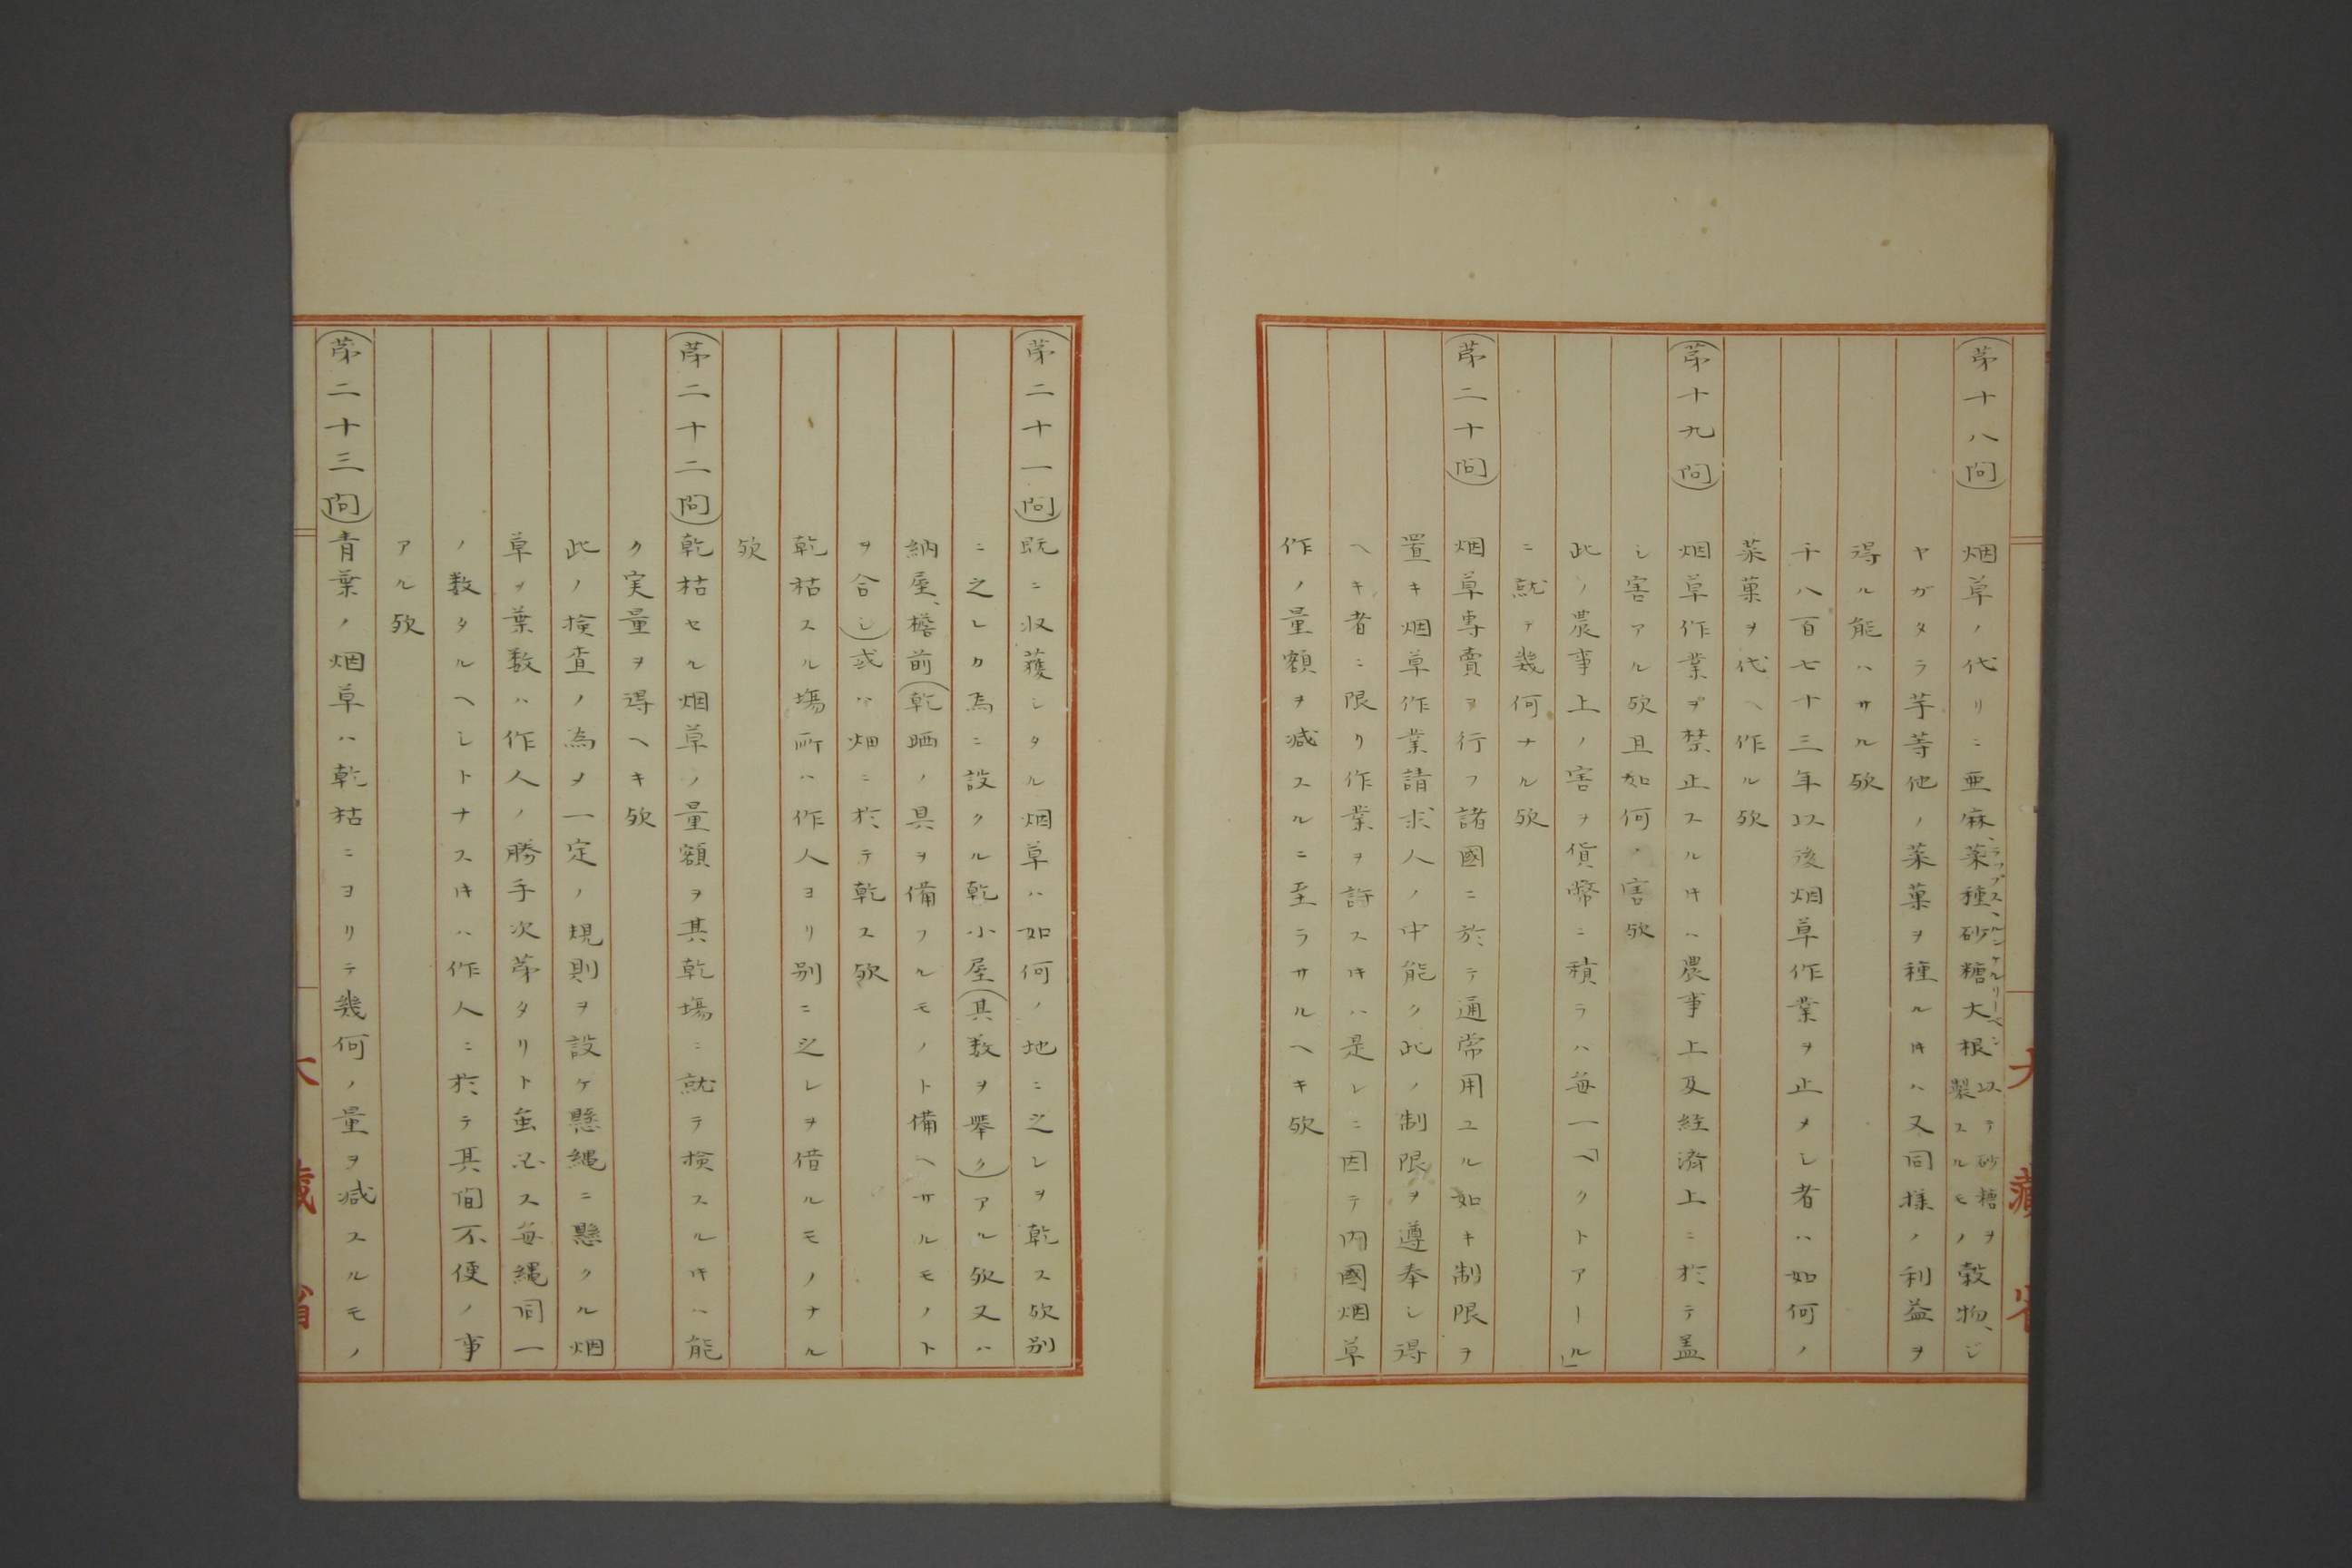 (第十八問)烟草ノ代リニ亜麻、菜種、砂糖大根以テ砂糖ヲ製スルモノ穀物、ジ
ラップス、ルンケルリーベニ
ヤガタラ芋等他ノ菜菓ヲ種ルキハ又同様ノ利益ヲ
得ル能ハサル欤
千八百七十三年以後烟草作業ヲ止メシ者ハ如何ノ
菜菓ヲ代ヘ作ル欤
(第十九問)烟草作業ヲ禁止スルキハ農事上及経済上ニ於テ盖
シ害アル欤且如何ノ害欤
此ノ農事上ノ害ヲ貨幣ニ積ラハ毎一「ヘクトアール」
ニ就テ幾何ナル欤
(第二十問)烟草専賣ヲ行フ諸國ニ於テ通常用ユル如キ制限ヲ
置キ烟草作業請求人ノ中能ク此ノ制限ヲ遵奉シ得
ヘキ者ニ限リ作業ヲ許スキハ是レニ因テ内國烟草
作ノ量額ヲ減スルニ至ラサルヘキ欤
大藏省
(第二十一問)既ニ収獲シタル烟草ハ如何ノ地ニ之レヲ乾ス欤別
ニ之レカ為ニ設クル乾小屋(其数ヲ擧ク)アル欤又ハ
納屋、檐前(乾晒ノ具ヲ備フルモノト備ヘサルモノト
ヲ合シ)或ハ畑ニ於テ乾ス欤
乾枯スル場所ハ作人ヨリ別ニ之レヲ借ルモノナル
欤
(第二十二問)乾枯セル烟草ノ量額ヲ其乾場ニ就テ検スルキハ能
ク実量ヲ得ヘキ欤
此ノ検査ノ為メ一定ノ規則ヲ設ケ懸縄ニ懸クル烟
草ヲ葉数ハ作人ノ勝手次第タリト虽必ス毎縄同一
ノ数タルヘシトナスキハ作人ニ於テ其間不便ノ事
アル欤
(第二十三問)青葉ノ烟草ハ乾枯ニヨリテ幾何ノ量ヲ減スルモノ
大藏省